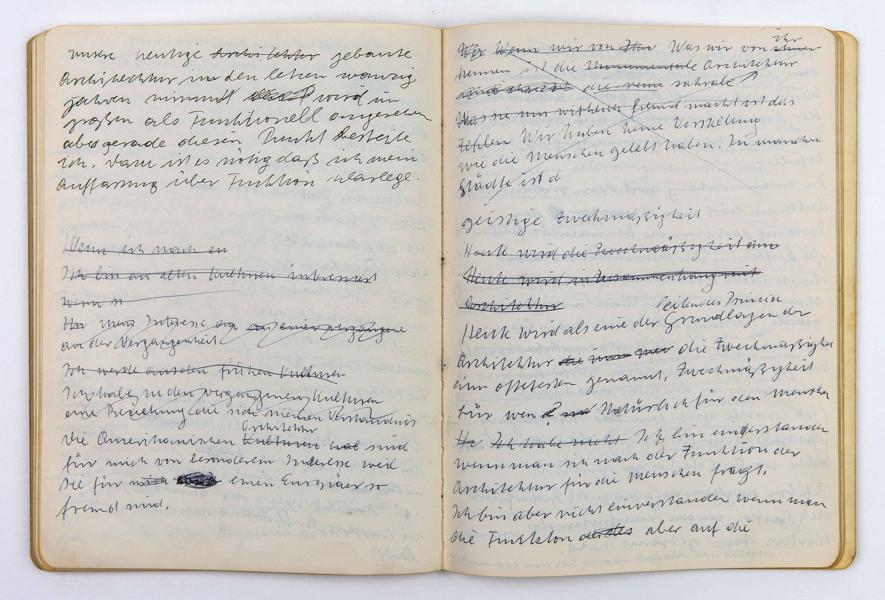 unsere heutige Architektur gebaute
Architektur in den letzen wanzig
jahren nimmt wird im
großen als Funktionell angesehen
aber gerade diesen Punkt besteite
ich. dazu ist es nötig daß ich mein
Auffassung über Funktion klarlege.
Wenn ich nach en
Ich bin an alten Kulturen intressiert
wenn
Mein Interesse an vergangene
an der Vergangenheit
Ich werde aus den frühen Kulturen
Ich habe zu den vergangenen Kulturen
eine Beziehung die sich meinen Verständnis
Architektur
die Amerikanischen Kulturen sind
für mich von besonderem Interesse weil
sie für mich einen Europäer so
fremd sind.
Wenn wir von Was wir von ihr
kennen ist die Monumentale Architektur
die reine sakrale
Was sie uns wirklich fremd macht ist das
fehlen Wir haben keine Vorstellung
wie die Menschen gelebt haben. In manchen
Städte ist d
geistige Zweckmäßigkeit
Heute wird die Zweckmäßigkeit am
Heute wird in Zusammenhang mit
Architektur
leitendes Prinzip
Heute wird als eine der Grundlagen der
Architektur die Zweckmäßigkeit
am oftesten genannt. Zweckmäßigkeit
für wen? Natürlich für den Menschen
Ich habe nicht Ich bin einverstanden
wenn man sich nach der Funktion der
Architektur für die Menschen frägt.
Ich bin aber nicht einverstanden wenn man
die Funktion aber auf die